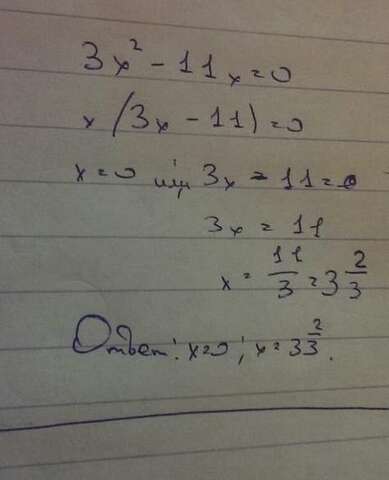 3x² - 11x = 0
x (3x - 11) = 0
x = 0 или 3x - 11 = 0
3x = 11
x = 11/3 = 3 2/3
Ответ: x=0; x=3 2/3.